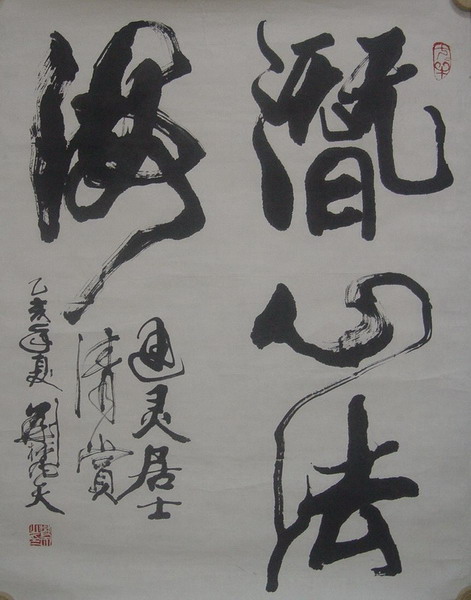 潛心法
海
通灵居士
清赏
乙亥年夏
天